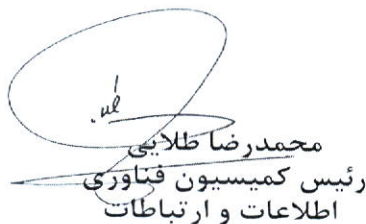 محمدرضا طلایی
رئیس کمیسیون فناوری
اطلاعات و ارتباطات